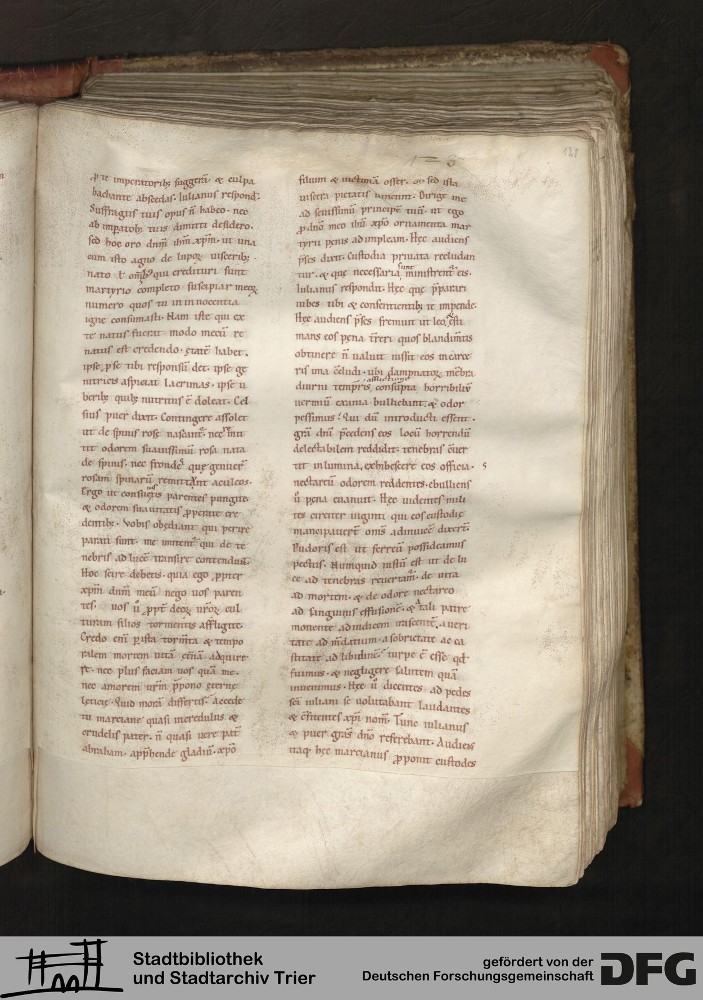 imperatoribꝫ suggerā · & culpa
bachante abscedas · Iulianus respond̄·
Suffragiis tuis opus n̄ habeo · nec
ab impatoribꝫ tuis dimitti desidero ·
sed hoc oro dnm̄ ihm̄ xp̄m · ut una
cum isto agno de lupoꝝ uisceribꝫ
nato qui credituri sunt
martyrio completo suscipiar meoꝝ
numero quos tu in innocentia
igne consumasti · Nam iste qui ex
te natus fuerat modo mecū re
natus est credendo · etatē habet ·
ipse ꝓ se tibi responsū det · ipse ge
nitricis aspiciat lacrimas · ipse u
beribꝫ quibꝫ nutritus ē doleat · Cel
sius puer dixit · Contingere assolet
ut de spinis rose nascant̄ · nec
tit odorem suauissimū rosa nata
de spinis · nec que genuer̄
rosam spinarū remittunt aculeos ·
Ergo ut consuestis parentes pungite ·
& odorem suauitatis ꝓ penite cre
dentibꝫ · Vobis obediant qui perire
parati sunt · me imitent̄ qui de te
nebris ad lucē transire contendunt̄
Hoc scire debetis · quia ego ꝓpter
xp̄m dnm̄ meū nego uos paren
tes · uos ū ꝓpt̄ deoꝝ ur̄oꝝ cul
turam filios tormentis affligite ·
Credo eni ꝑ ista torm̄ta & tempo
ralem mortem uitā et̄nā adquire
re · nec plus faciam uos quā me ·
nec amorem ur̄m p̄pono eterne
leticie · Quid morā differtis · accede
tu marciane quasi incredulus &
crudelis pater · n̄ quasi uere pat̄
abraham · app̄hende gladiū · xp̄o
filium & uictimā offer · sed ista
uiscera pietatis uincunt · Dirige me
ad seuissimū principē tuū · ut ego
ꝓ dn̄o meo ihū xp̄o ornamenta mar
tyrii penis adimpleam · Hęc audiens
p̄ses dixit · custodia priuata recludan
tur · & que necessaria sunt ministrent̄ eis ·
Iulianus respondit · Hęc que p̄parari
iubes tibi & consentientibꝫ te impende ·
Hęc audiens p̄ses fremuit ut leo · & esti
mans eos pena t̄reri quos blandim̄tis
obtinere n̄ ualuit iussit eos in carce
ris ima c̄cludi · ubi dampnatoꝝ mēbra
diurni temp̄ris afflictione consūpta horribiliū
uermiū examia bulliebant · & odor
pessimus · Qui dū introducti essent ·
gr̄a dnī p̄cedens eos locū horrendū
delectabilem reddidit · tenebris c̄uer
tit in lumina, exhibescere eos officia ·
nectareū odorem reddentes · ebulliens
ū pena euanuit · Hęc uidentes mili
tes circiter uiginti qui eos custodię
mancipauerāt om̄s adinuicē dixert̄ ·
Pudoris est ut ferreū possideamus
pectus · Numquid iustū est ut de lu
ce ad tenebras reuertam̄ · de uita
ad mortem · & de odore nectareo
ad sanguinis effusionē · & tali patre
monente ad iudicem irascente · a ueri
tate ad m̄datium · a sobrietate ac ca
stitate ad libidinē · turpe ē esse qd̄
fuimus · & negligere salutem quā
inuenimus · Hęc ū dicentes ad pedes
sc̄i iuliani se uolutabant laudantes
& c̄fitentes xp̄i nom̄ · Tunc iulianus
& puer gr̄as dn̄o referebant · Audiens
itaq̨ hęc marcianus ꝓponit custodes
Stadtbibliothek
und Stadtarchiv Trier
gefördert von der
Deutschen Forschungsgemeinschaft
DFG